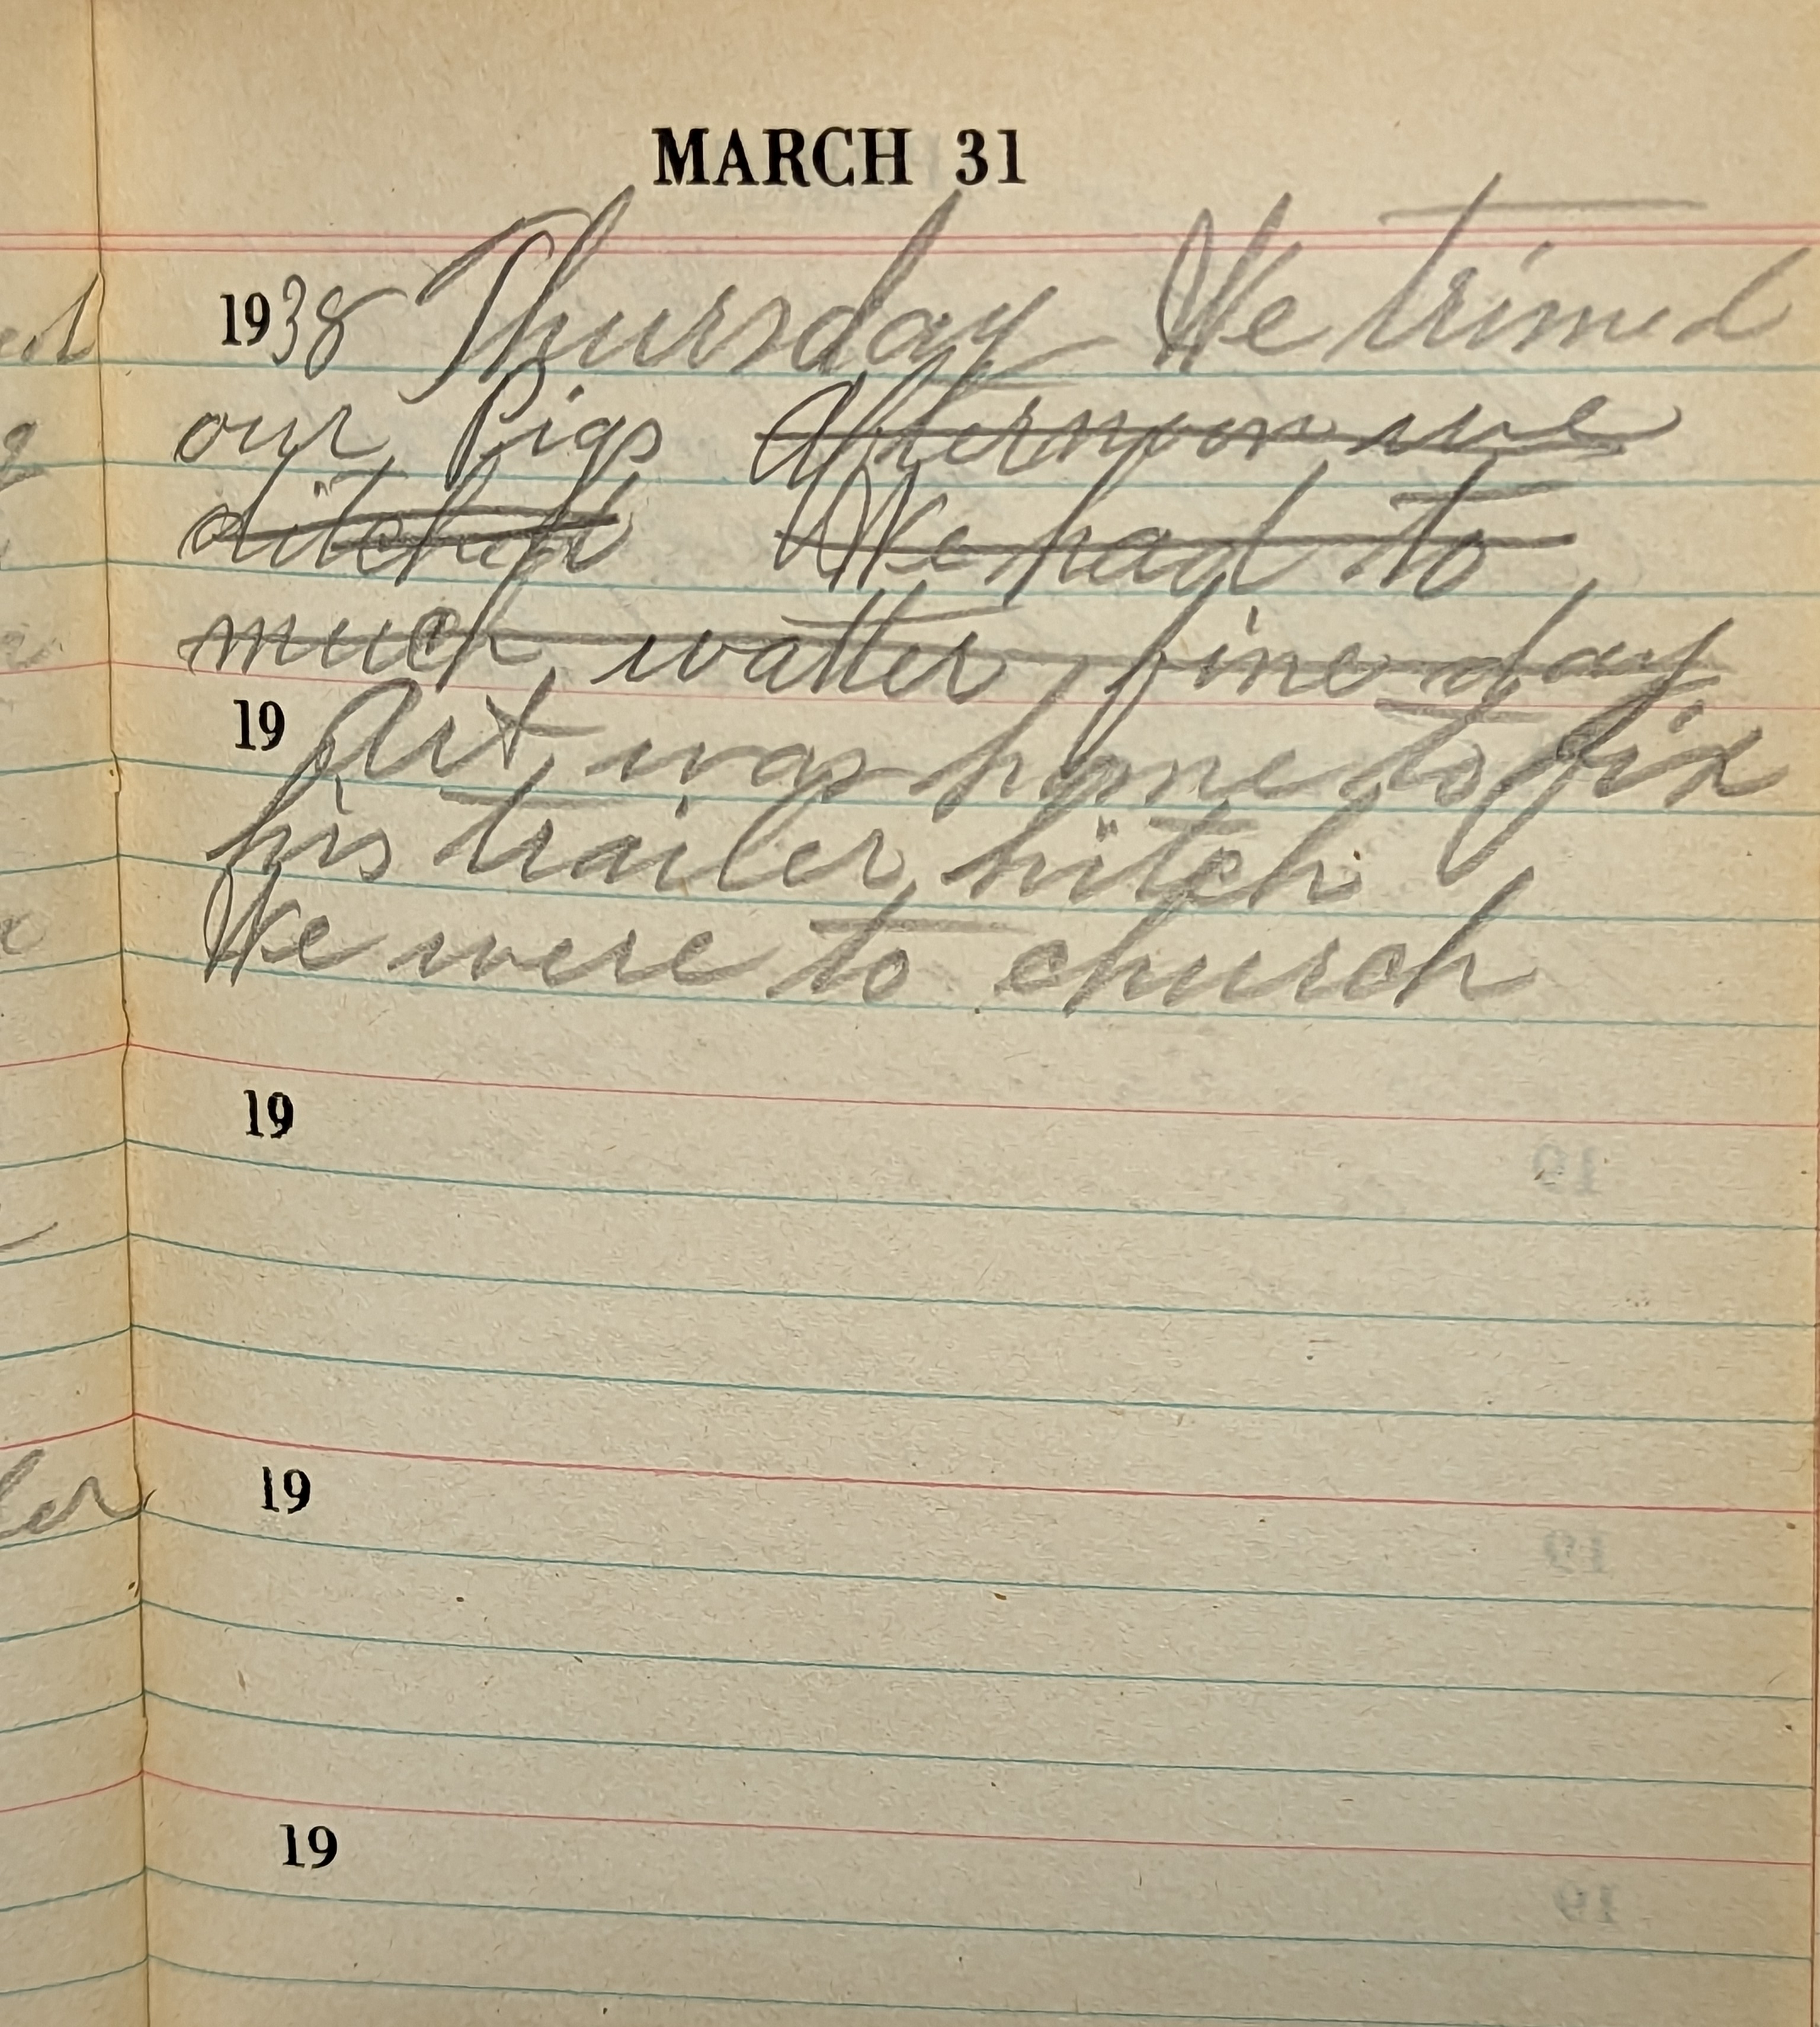 MARCH 31
1938 Thursday We trimed
our Pigs Afternoon we
ditched We had to
much watter fine day
19 Art was home to fix
his trailer hitch
We were to church
19
19
19